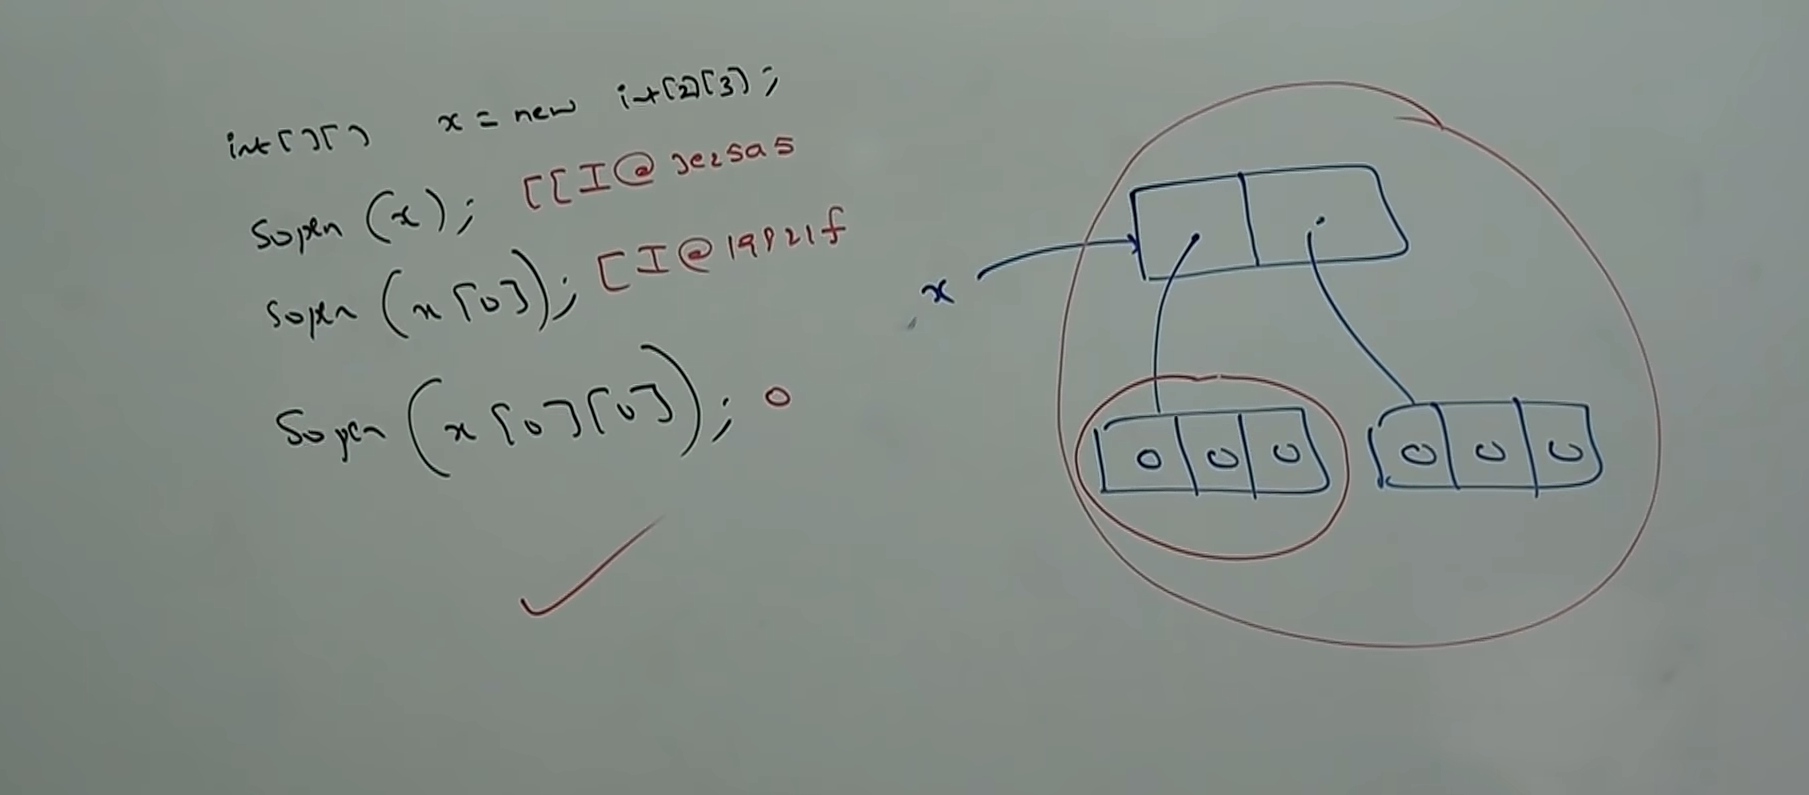 int[][] x = new int[2][3];
Sopln (x); [[I@3e25a5
Sopln (x[0]); [I@19821f
Sopln (x[0][0]); 0
x
0 0 0 0 0 0